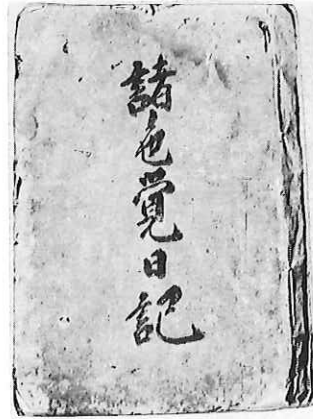 諸色覚日記